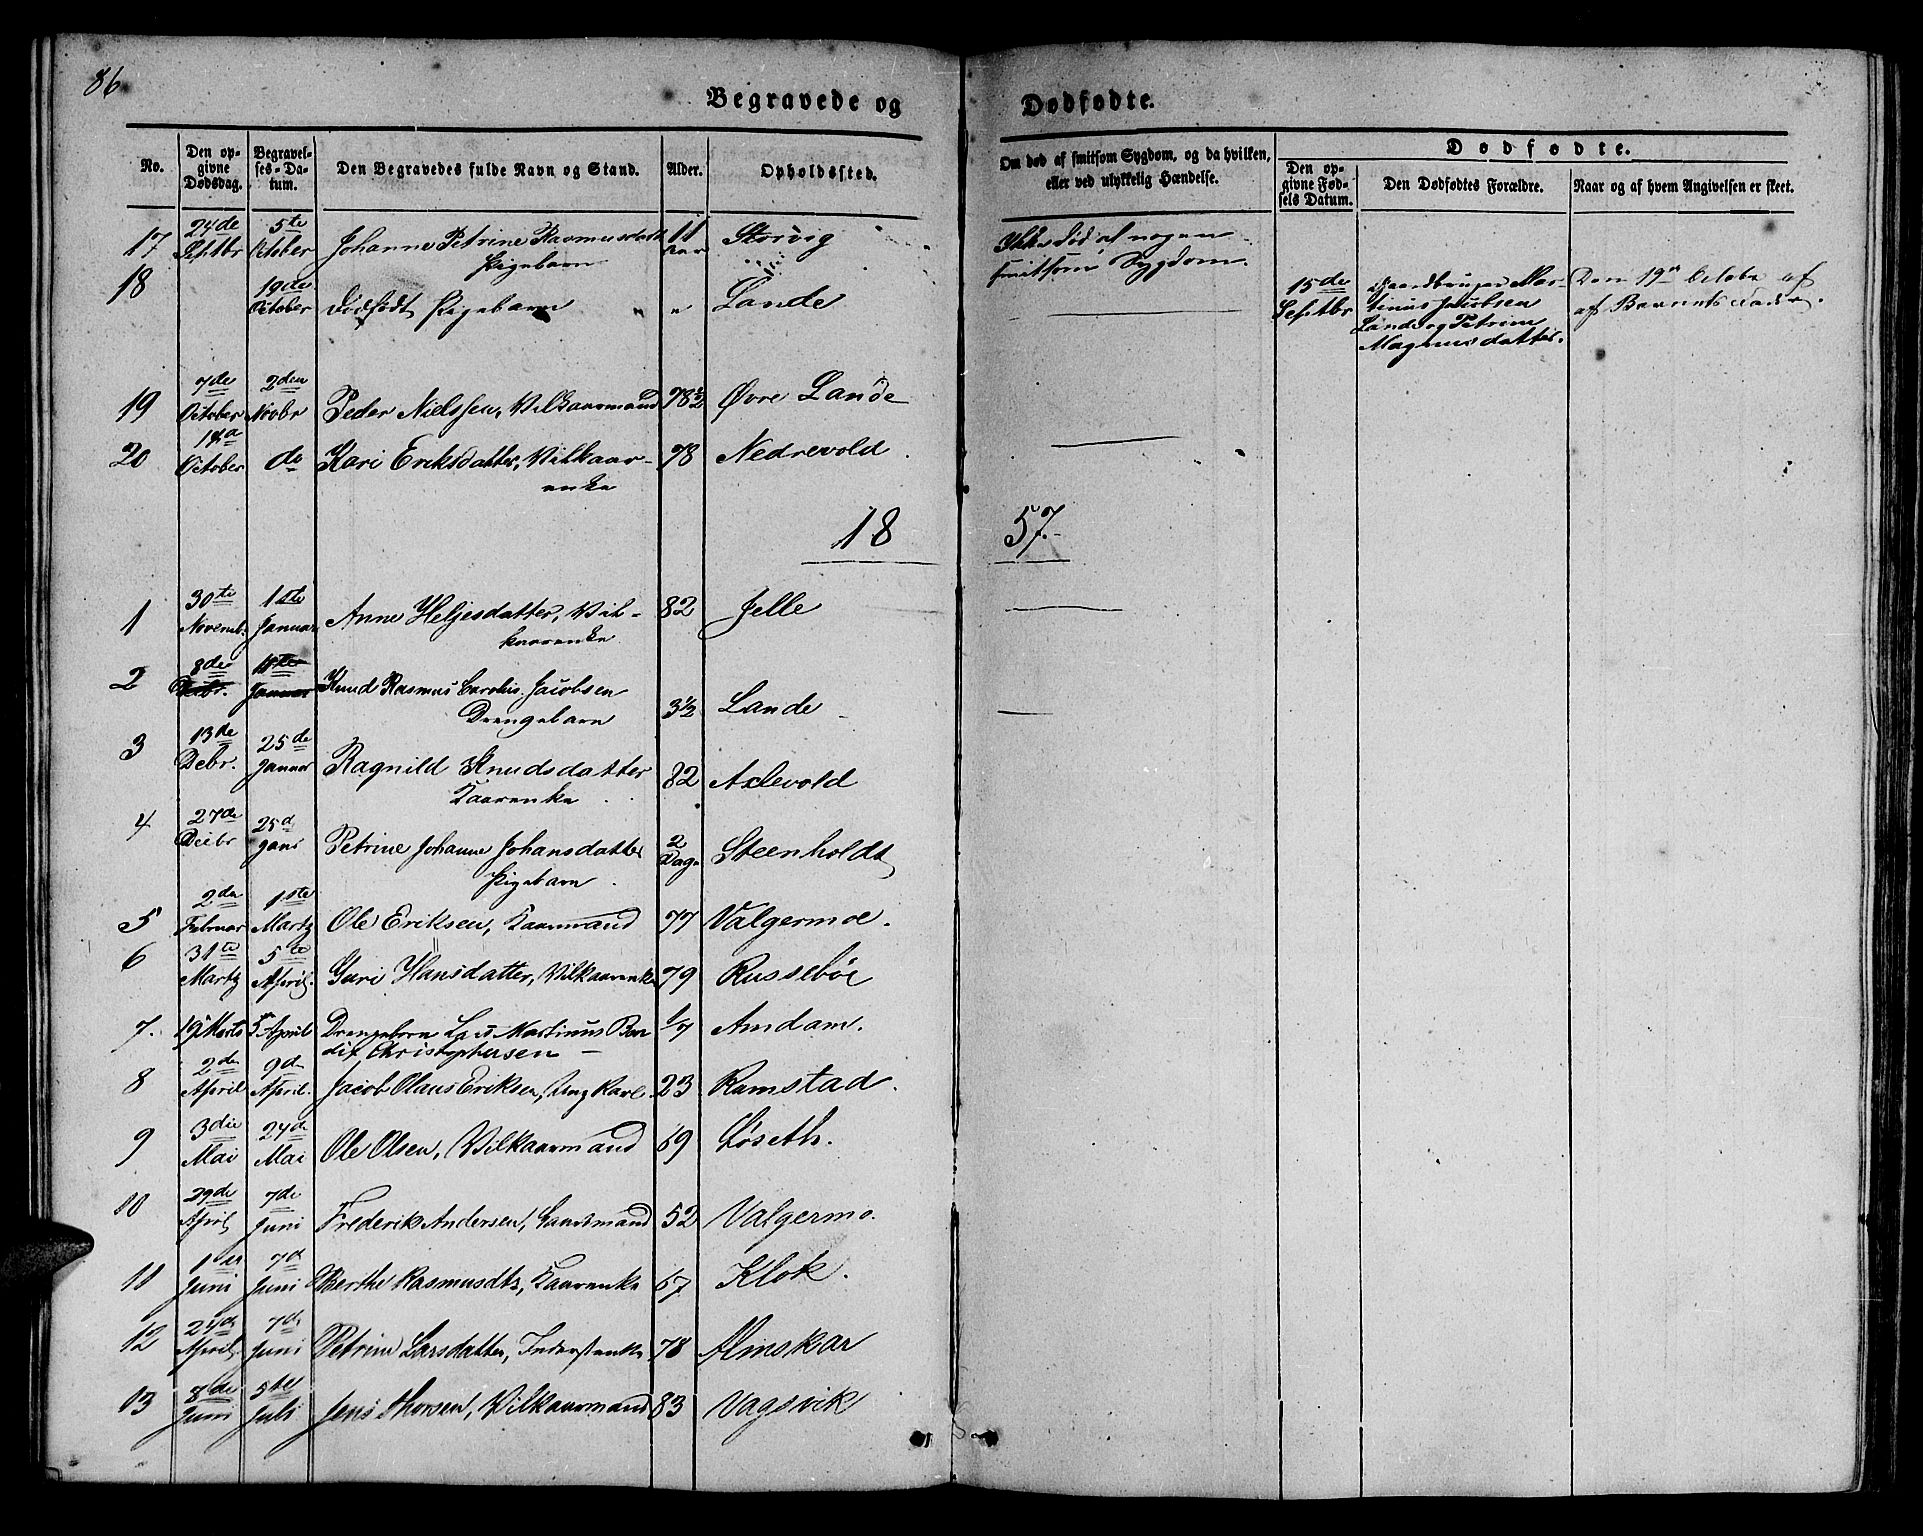 86
Begravede og Dødfødte.
No.
Den opgivne Dødsdag.
Begravelses-Datum.
Den Begravedes fulde Navn og Stand.
Alder.
Opholdssted.
Om død af smitsom Sygdom, og da hvilken, eller ved ulykkelig Hændelse.
Dødfødte.
Den opgivne Fødsels Datum.
Den Dødfødtes Forældre.
Naar og af hvem Angivelsen er skeet.
17 24de Septbr 5te October Johanne Petrine Rasmusdatt Pigebarn 11 Storvig
Ikke død af nogen smitsom Sygdom.
18 19de October dødfødt Pigebarn " Lande
15de Septbr
Gaardbruger Martinus Jacobsen Lande og Petrine Magnusdatter.
Den 19de October af af Barnets Fader.
19 7de October 2den Novbr Peder Nielssen, Vilkaarmand 78½ Øvre Lande
20 October do Kari Eriksdatter, Vilkaarenke 78 Nedrevold
1857.
1 30te Novemb. 1ste Januar Anne Heljesdatter, Vilkaarenke 82 Jelle
2 8de Debr. 11te Januar Knud Rasmus Carolus Jacobsen Drengebarn 3½ Lande
3 13de Debr. 25de Januar Ragnild Knudsdatter Kaarenke 82 Axlevold
4 27de Decbr 25d Janr Petrine Johanne Johansdatter Pigebarn 2 Dage Steenholdt
5 2de Februar 1ste Martz Ole Eriksen, Kaarmand 77 Valgermoe.
6 31te Martz 5te April. Guri Hansdatter, Vilkaarenke 79 Russebøe
7. 19 Marts 5 April Drengebarn Martinus Bendix Christophersen 1/7 Amdam.
8 2de April 9d April. Jacob Olaus Eriksen, Ung Karl 23 Ramstad.
9 3die Mai 24de Mai Ole Olsen, Vilkaarmand 69 Løseth.
10 29de April 7de Juni Frederik Andersen, Gaardmand 52 Valgermo.
11 1ste Juni 7d Juni Berthe Rasmusdtr, Kaarenke 67 Klok.
12 24de April 7de Juni Petrine Larsdatter, Inderstenke 78 Almskar
13 8de Juni 5te Juli Jens Thorsen, Vilkaarmand 83 Vagsvik